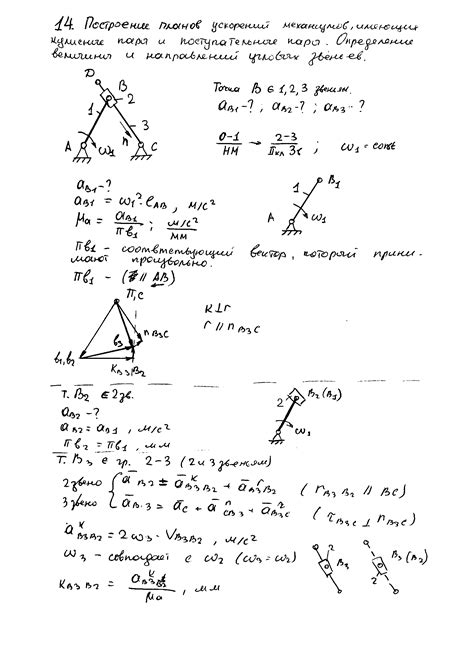 14. Построение планов ускорений механизмов, имеющих
кулисные пары и поступательные пары. Определение
величины и направлений угловых звеньев.
D
B
2
1
3
A
ω1
n
C
Точка B ∈ 1, 2, 3 звеньям.
aB1 - ?, aB2 - ? ; aB3 - ?
0-1/НМ → 2-3/II кл 3г ; ω1 = const
aB1 - ?
aB1 = ω1² · lAB , м/с²
μa = aB1/πb1 ; м/с²/мм
1
B1
A
ω1
πb1 - соответствующий вектор, который прини-
мают произвольно.
πb1 - (// AB)
π, c
b3
nB3C
b1, b2
kB3B2
k ⊥ r
r // nB3C
т. B2 ∈ 2 зв.
aB2 - ?
aB2 = aB1 , м/с²
πb2 = πb1 , мм
2
B2 (B1)
т. B3 ∈ гр. 2-3 (2 и 3 звеньям)
2 звено { āB2 ± āᵏB3B2 + āʳB3B2 (rB3B2 // BC)
3 звено { āB3 = āC + āⁿCB3 + āᵗB3C (τB3C ⊥ nB3C)
aᵏB3B2 = 2ω3 · VB3B2 , м/с²
ω3 - совпадает с ω2 (ω3 = ω2)
kB3B2 = aᵏB3B2/μa , мм
2
B3
3
B3 (B2)
2